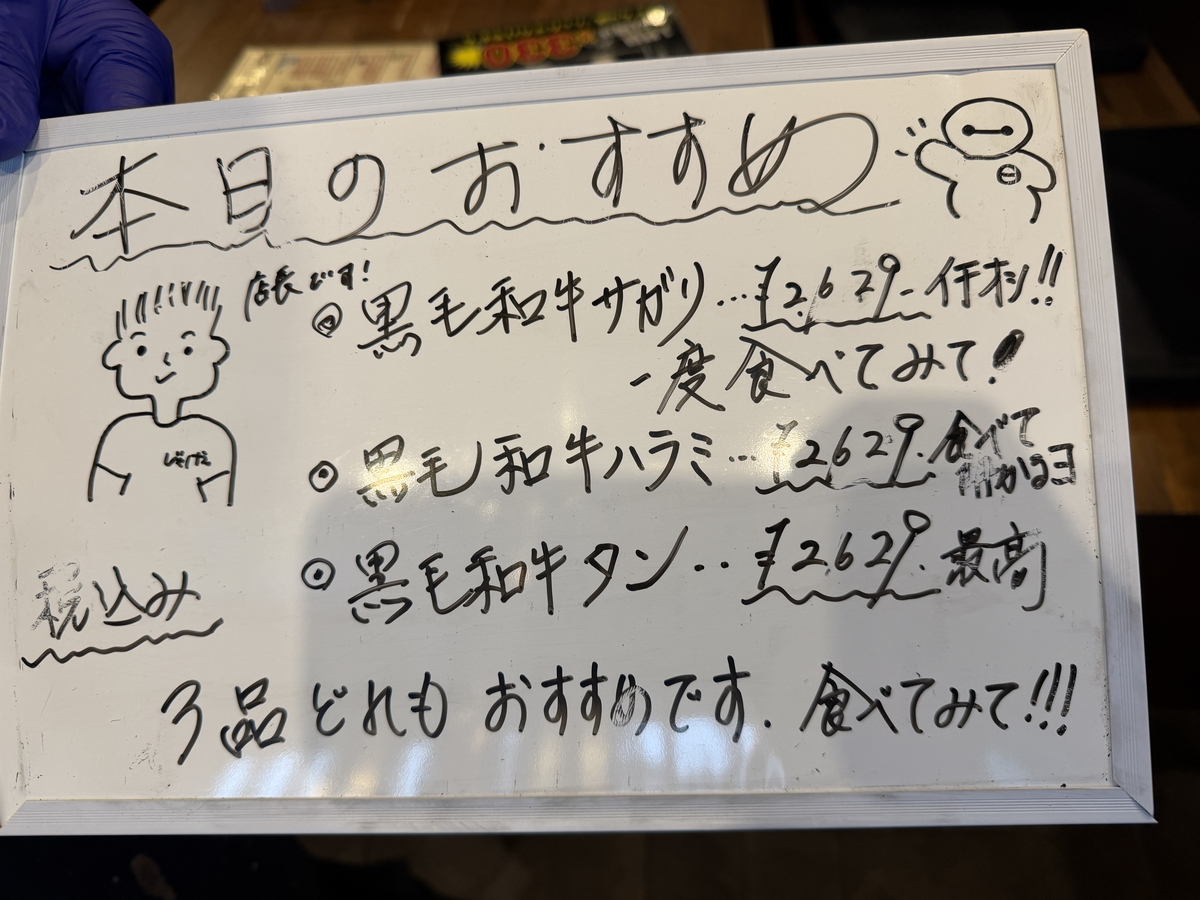 本日のおすすめ
店長です!
◉黒毛和牛サガリ…¥2,629- イチオシ!!
一度食べてみて!
◉黒毛和牛ハラミ…¥2,629. 食べて
かるヨ
◉黒毛和牛タン‥¥2,629. 最高
税込み
3品どれもおすすめです. 食べてみて!!!
¥390